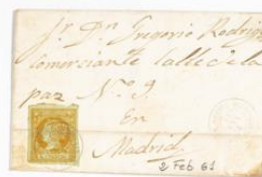 Sr. Dn. Gregorio Rodrig
Comerciante Calle de la
paz Nº 9
En
Madrid
2 Feb 61